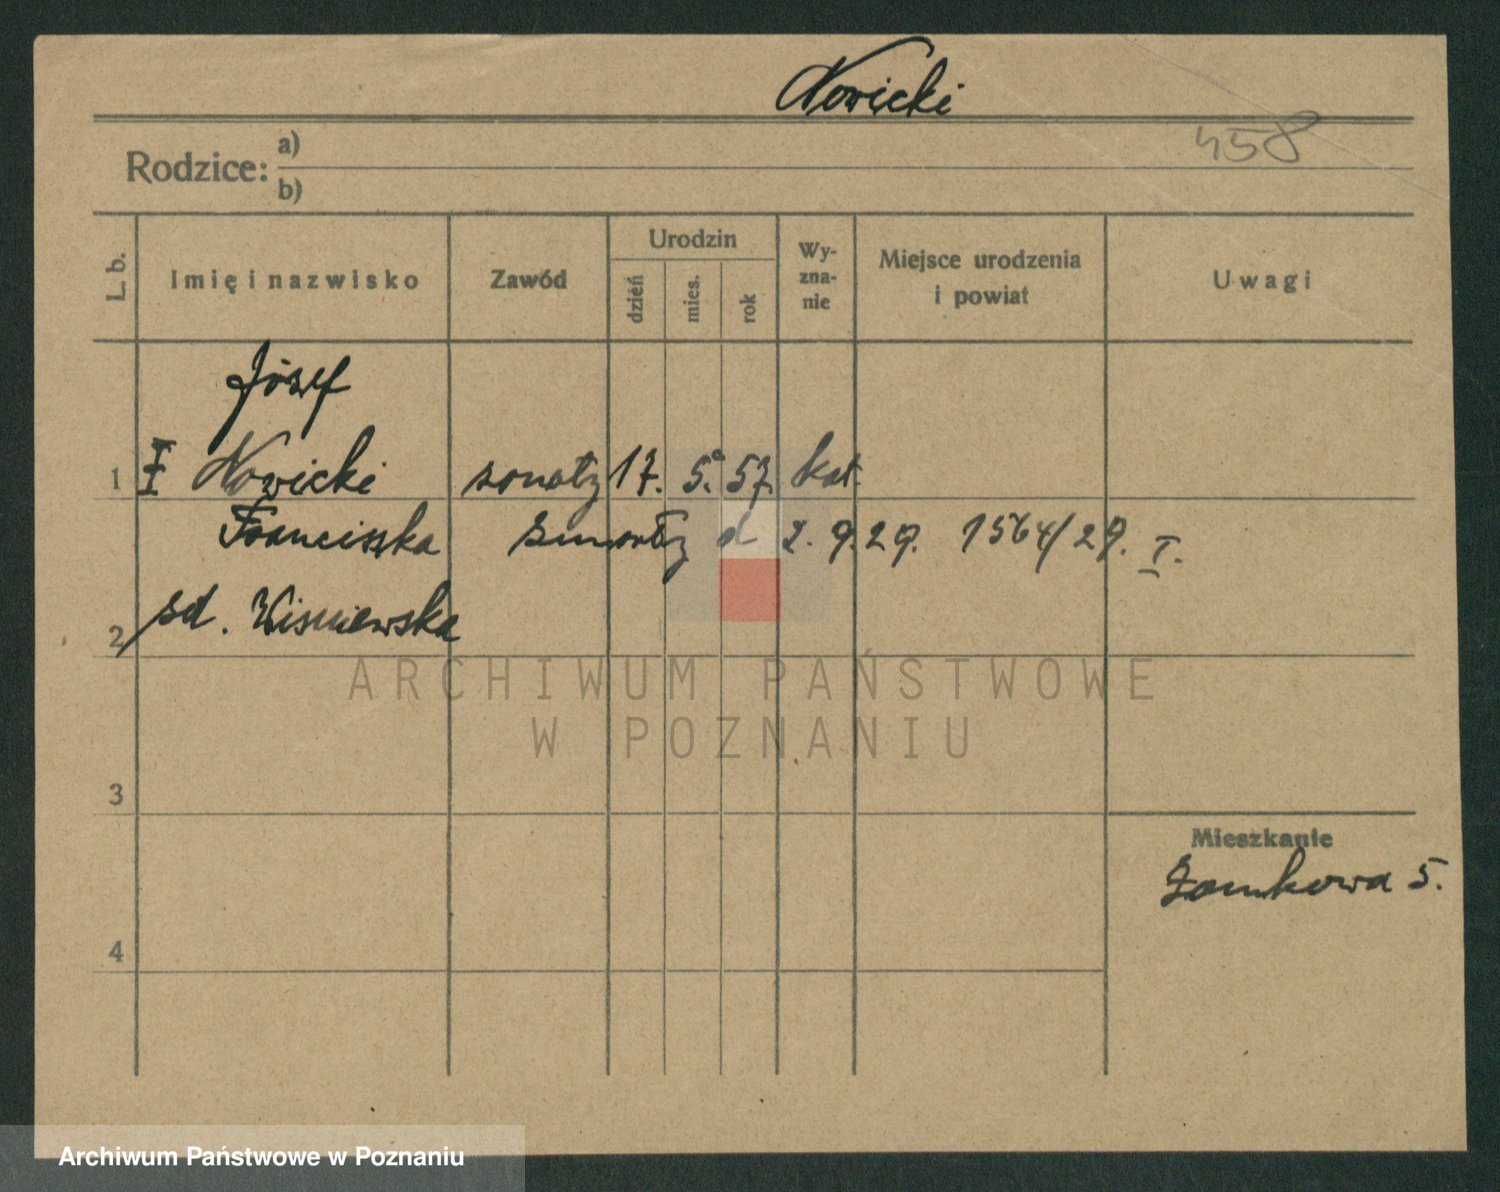 Nowicki
458
Rodzice: a)
b)
L. b. Imię i nazwisko Zawód Urodzin dzień mies. rok Wy-zna-nie Miejsce urodzenia i powiat Uwagi
Józef
1 Nowicki żonaty 17. 5. 57. kat.
Franciszka zmarły d 2. 9. 29. 1564/29. I.
2 zd. Wisniewska
ARCHIWUM PAŃSTWOWE
W POZNANIU
3
Mieszkanie
Zamkowa 5.
4
Archiwum Państwowe w Poznaniu